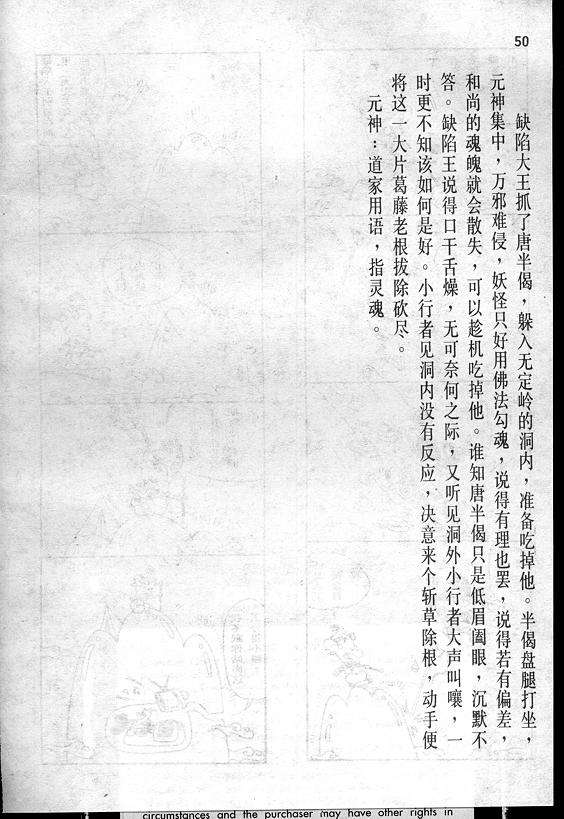 50
缺陷大王抓了唐半偈，躲入无定岭的洞内，准备吃掉他。半偈盘腿打坐，
元神集中，万邪难侵，妖怪只好用佛法勾魂，说得有理也罢，说得若有偏差，
和尚的魂魄就会散失，可以趁机吃掉他。谁知唐半偈只是低眉阖眼，沉默不
答。缺陷王说得口干舌燥，无可奈何之际，又听见洞外小行者大声叫嚷，一
时更不知该如何是好。小行者见洞内没有反应，决意来个斩草除根，动手便
将这一大片葛藤老根拔除砍尽。
元神：道家用语，指灵魂。
circumstances and the purchaser may have other rights in